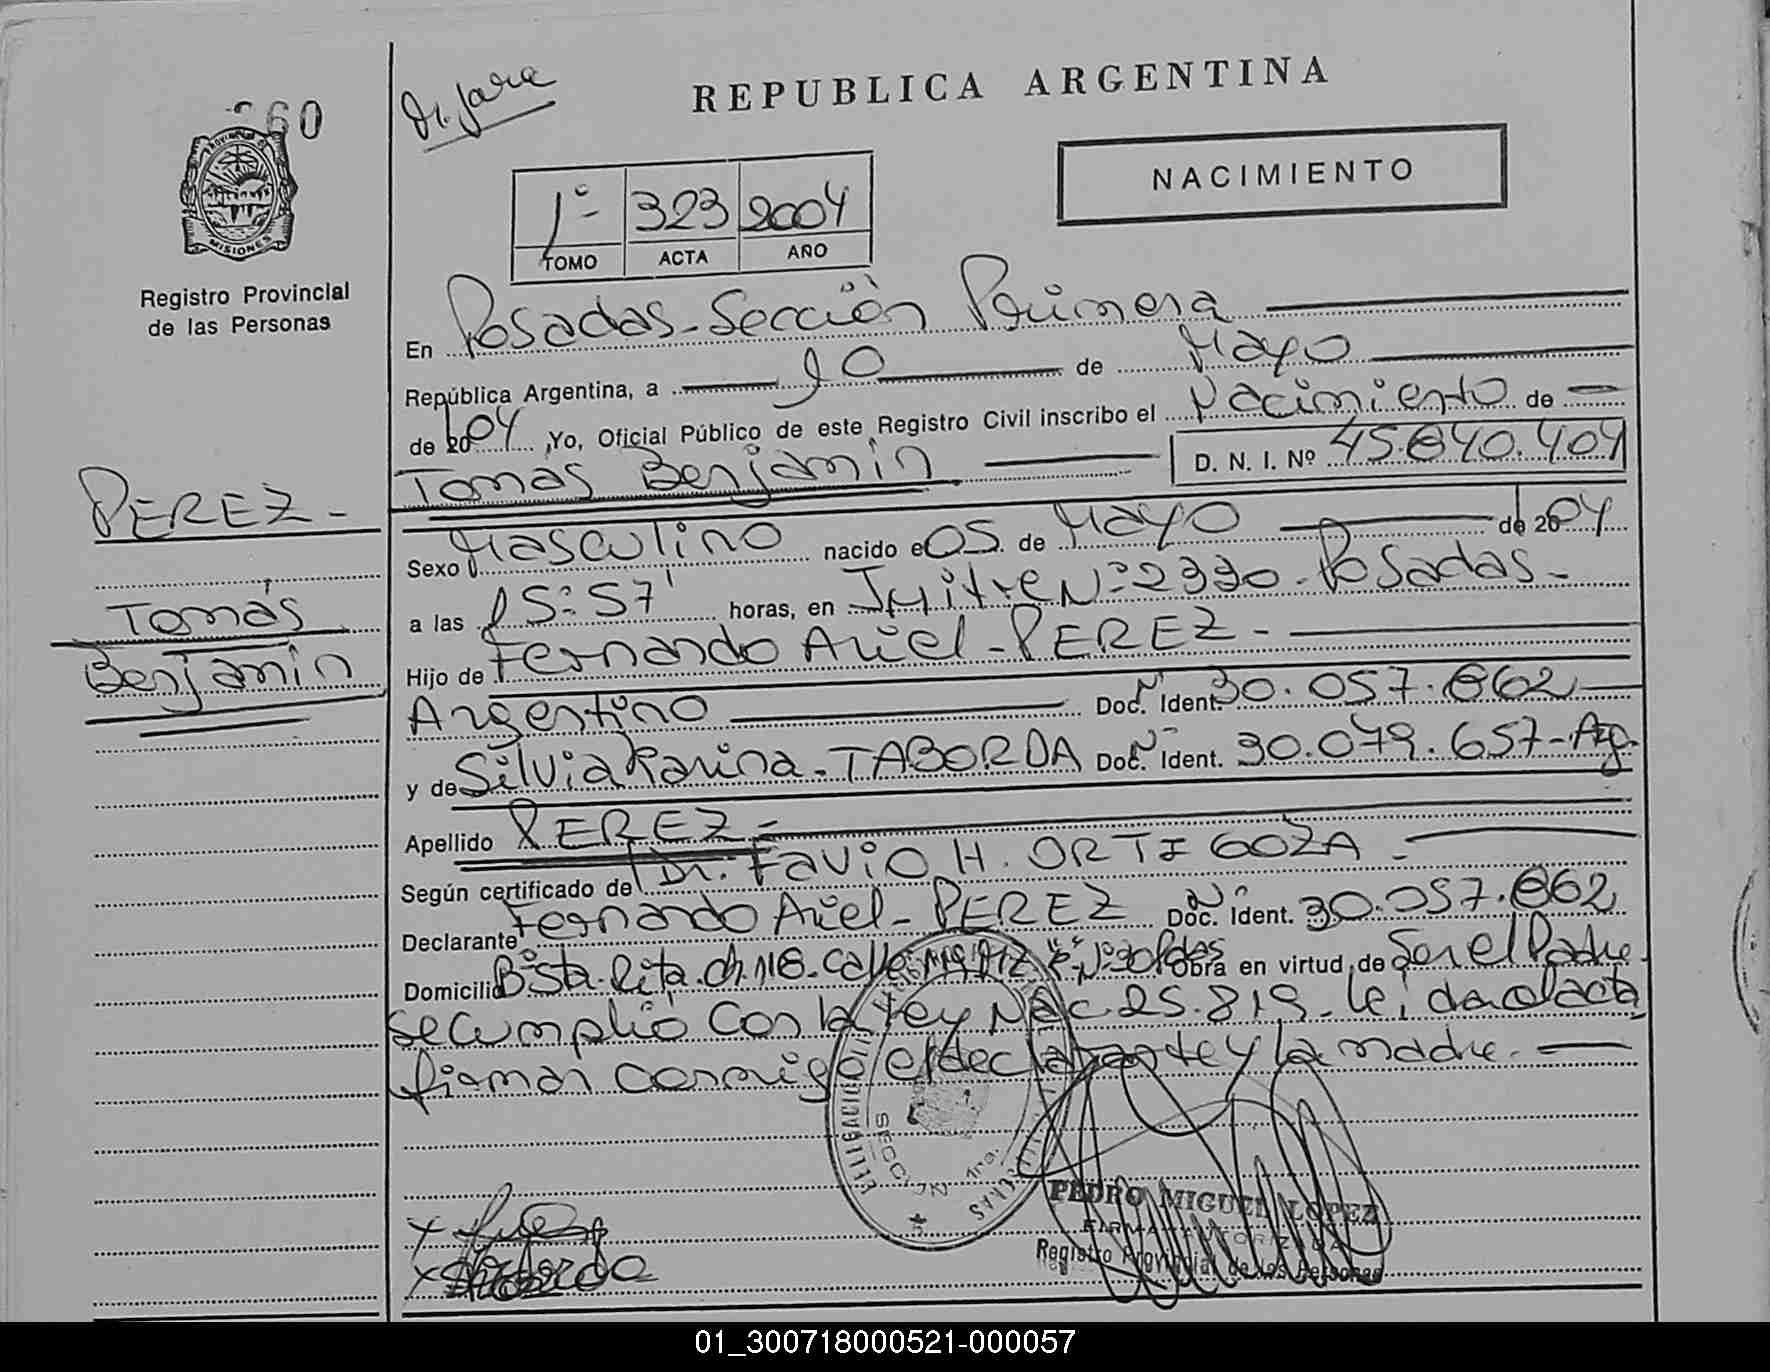 60
PROVINCIA DE
MISIONES
Registro Provincial
de las Personas
REPUBLICA ARGENTINA
NACIMIENTO
1º- 323 2004
TOMO ACTA AÑO
En Posadas-Sección Primera
República Argentina, a 10 de Mayo
de 2004, Yo, Oficial Público de este Registro Civil inscribo el Nacimiento de
Tomás Benjamín D. N. I. Nº 45.840.404
PEREZ-
Tomás
Benjamín
Sexo Masculino nacido el 05 de Mayo de 2004
a las 15:57' horas, en Mitre Nº 2330-Posadas-
Hijo de Fernando Ariel-PEREZ-
Argentino Doc. Nº Ident. 30.057.862
y de Silvia Karina-TABORDA Doc. Nº Ident. 30.079.657-Arg.
Apellido PEREZ-
Según certificado de Dr. Favio H. ORTIGOZA-
Declarante Fernando Ariel-PEREZ Doc. Nº Ident. 30.057.862
Domicilio Bº Sta. Rita. ch. 118-Calle Nº 30 Pdas obra en virtud de Ser el Padre-
se cumplió con la Ley Nac 25.819-Leida el acta
firman conmigo el declarante y la madre.
SECCION 1ra.
PEDRO MIGUEL LOPEZ
FIRMA AUTORIZADA
Registro Provincial de las Personas
01_300718000521-000057